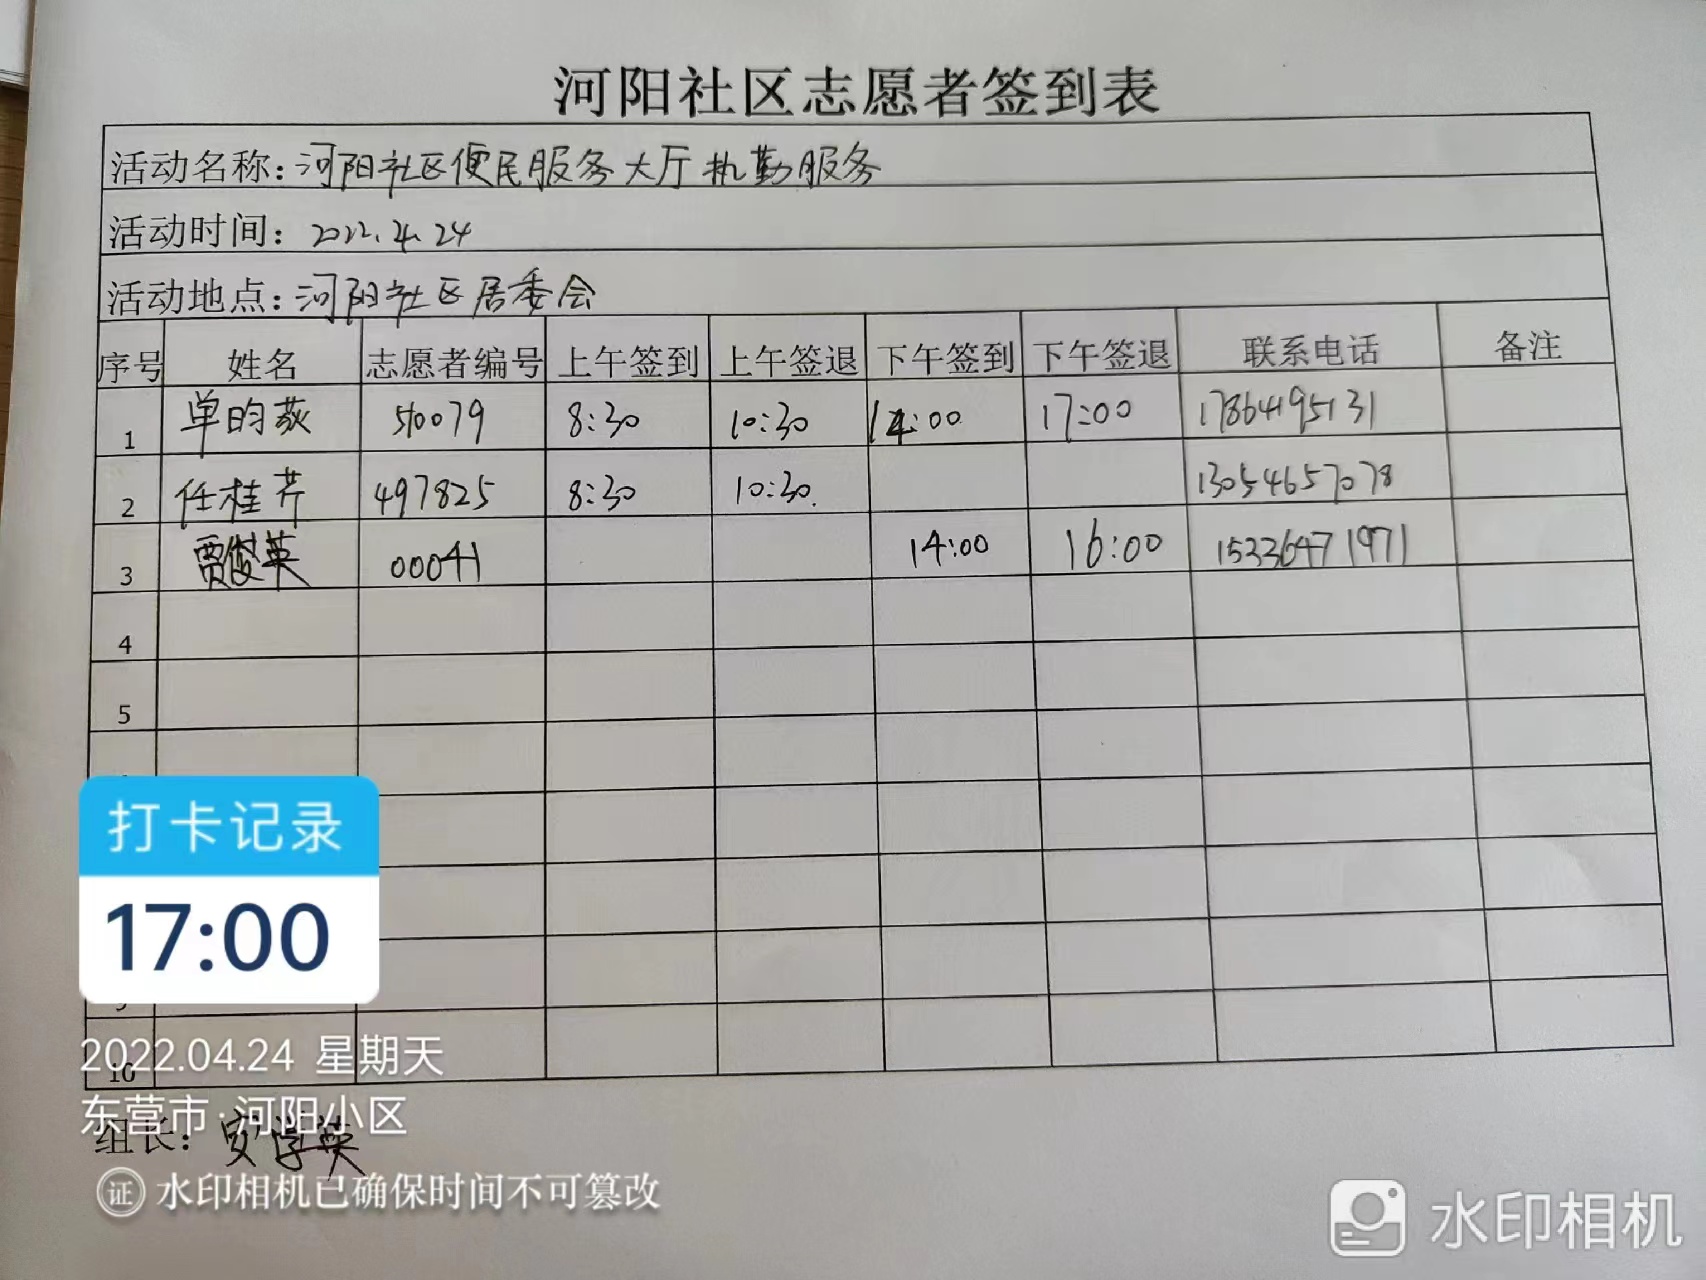 河阳社区志愿者签到表
活动名称：河阳社区便民服务大厅执勤服务
活动时间：2022.4.24
活动地点：河阳社区居委会
序号 姓名 志愿者编号 上午签到 上午签退 下午签到 下午签退 联系电话 备注
1 单昀荻 510079 8:30 10:30 14:00 17:00 17864195131
2 任桂芹 497825 8:30 10:30 13054657078
3 贾俊英 00041 14:00 16:00 15336471971
4
5
打卡记录
17:00
9
10
2022.04.24 星期天
东营市·河阳小区
组长：安学英
证 水印相机已确保时间不可篡改
水印相机